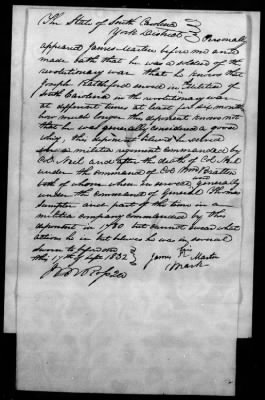 The State of South Carolina
York District Personally
appeared James Martin before me and
made oath that he was a soldier of the
revolutionary war that he knows that
Joseph served in Militia of
South Carolina in the revolutionary war
at different times at least for six months
how much longer this deponent knows not
that he was generally considered a good
Whig, the deponent he served
in a militia regiment commanded by
Col. Neil and after the death of Col. Neil
under the command of Col. Wm Bratton
both of whom when he served were generally
under the command of General Thomas
Sumpter and part of the time in a
militia company commanded by this
deponent in 1780 but cannot swear what
actions he in but believes he was in several
Sworn to before me
this 17th of Sept 1832
his
James Martin
mark